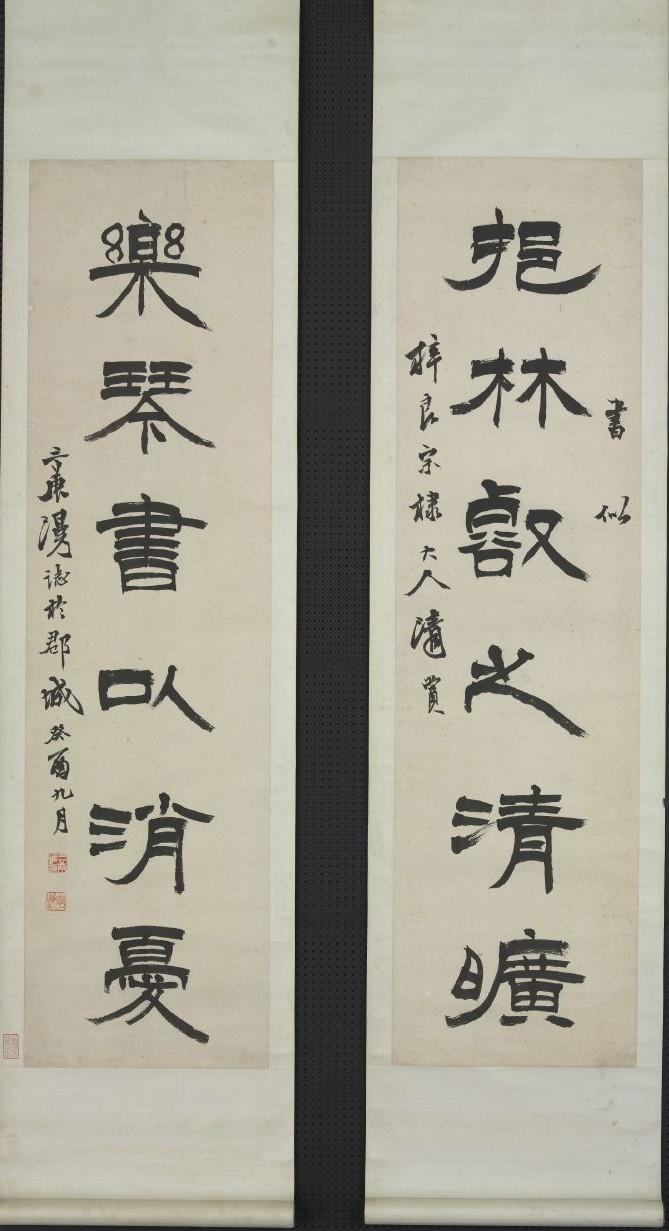 書似
挹林㕡之清曠
梓良宗棣大人清賞
樂琴書以消憂
漫誌於郡城癸酉九月